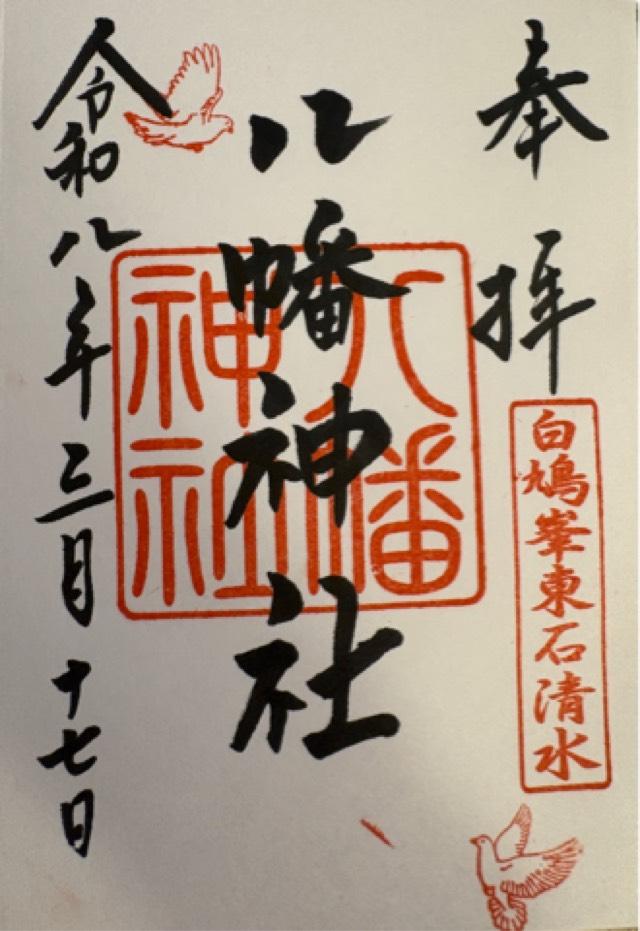 奉拝
白鳩峯東石清水
八幡神社
八幡神社
令和八年三月十七日